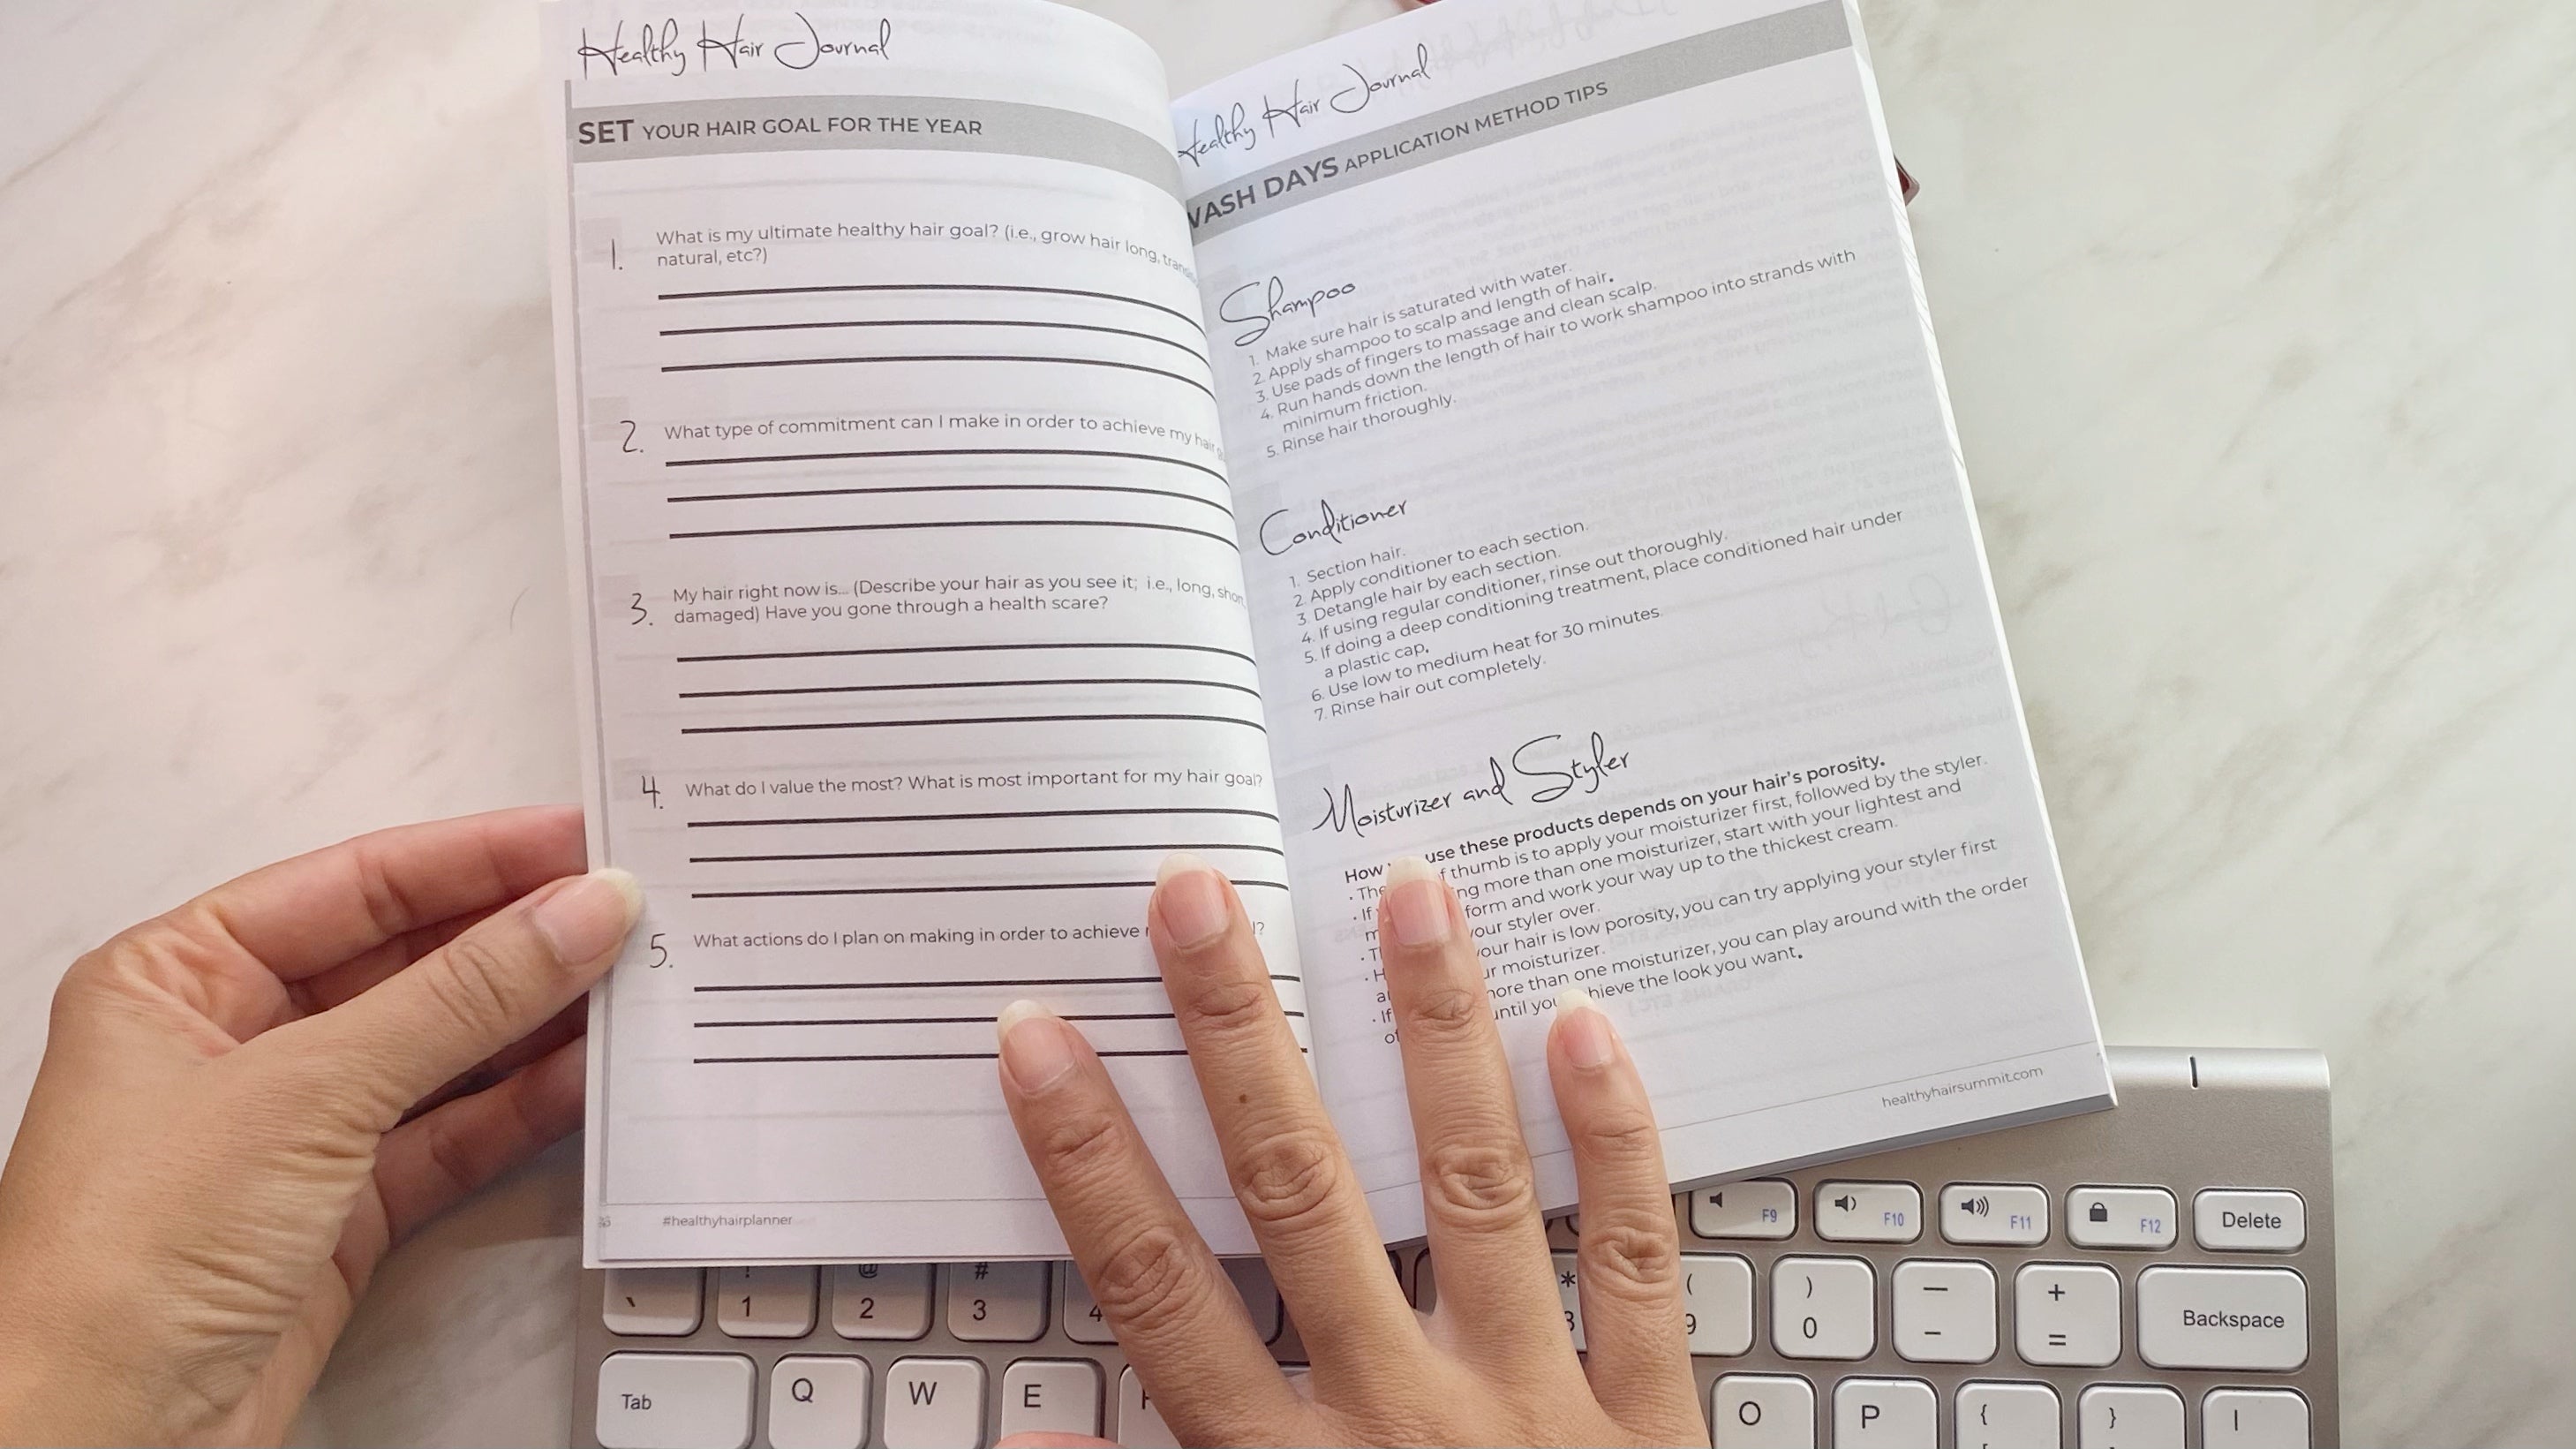 Healthy Hair Journal
SET YOUR HAIR GOAL FOR THE YEAR
1. What is my ultimate healthy hair goal? (i.e., grow hair long,
natural, etc?)
2. What type of commitment can I make in order to achieve my hair
3. My hair right now is... (Describe your hair as you see it; i.e., long, short,
damaged) Have you gone through a health scare?
4. What do I value the most? What is most important for my hair goal?
5. What actions do I plan on making in order to achieve
#healthyhairplanner
Healthy Hair Journal
WASH DAYS APPLICATION METHOD TIPS
Shampoo
1. Make sure hair is saturated with water.
2. Apply shampoo to scalp and length of hair.
3. Use pads of fingers to massage and clean scalp.
4. Run hands down the length of hair to work shampoo into strands with
minimum friction.
5. Rinse hair thoroughly.
Conditioner
1. Section hair.
2. Apply conditioner to each section.
3. Detangle hair by each section.
4. If using regular conditioner, rinse out thoroughly.
5. If doing a deep conditioning treatment, place conditioned hair under
a plastic cap.
6. Use low to medium heat for 30 minutes.
7. Rinse hair out completely.
Moisturizer and Styler
How use these products depends on your hair's porosity.
· The thumb is to apply your moisturizer first, followed by the styler.
· If more than one moisturizer, start with your lightest and
form and work your way up to the thickest cream.
your styler over.
your hair is low porosity, you can try applying your styler first
moisturizer.
· If more than one moisturizer, you can play around with the order
until you achieve the look you want.
healthyhairsummit.com
F9
F10
F11
F12
Delete
` ! 1 @ 2 # 3 4 * 8 ( 9 ) 0 — – + = Backspace
Tab Q W E O P { } |